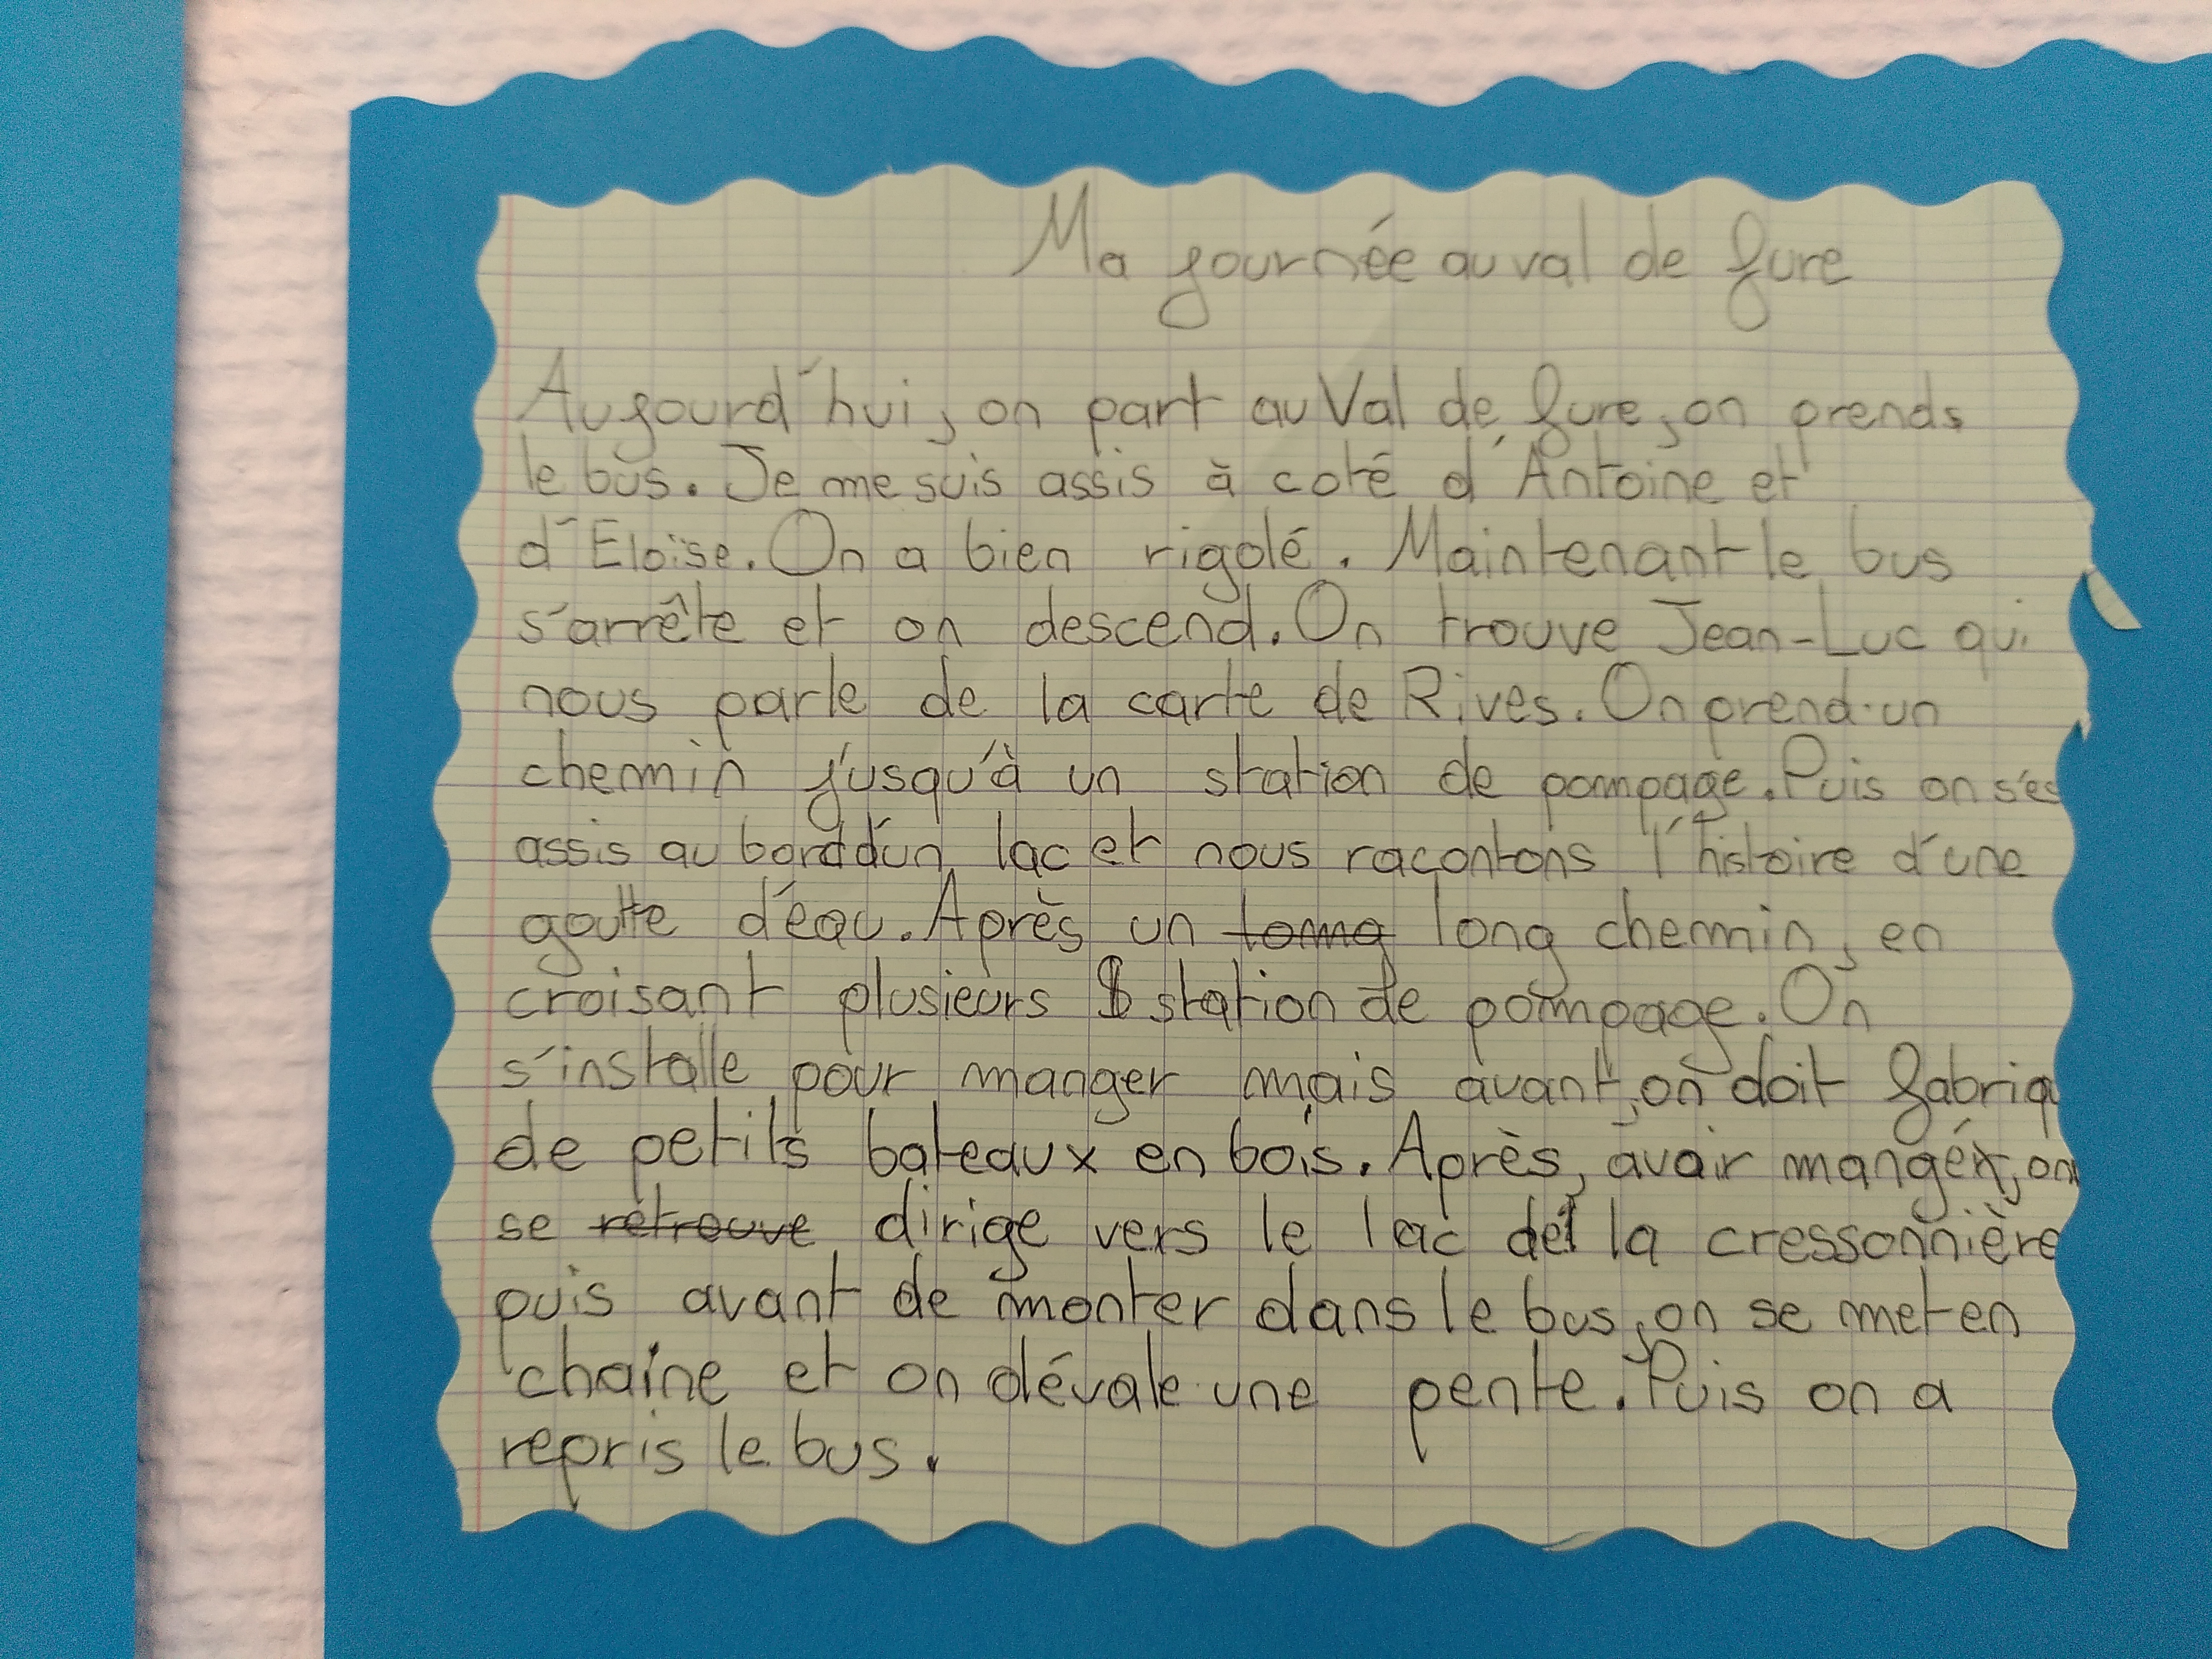 Ma journée au val de fure
Aujourd'hui, on part au Val de fure, on prends
le bus. Je me suis assis à coté d'Antoine et
d'Eloïse. On a bien rigolé. Maintenant le bus
s'arrête et on descend. On trouve Jean-Luc qui
nous parle de la carte de Rives. On prend un
chemin j'usqu'à un station de pompage. Puis on s'es
assis au bord d'un lac et nous racontons l'histoire d'une
goutte d'eau. Après un long chemin, en
croisant plusieurs station de pompage. On
s'installe pour manger mais avant, on doit fabriqu
de petits bateaux en bois. Après, avoir mangé, on
se retrouve dirige vers le lac de la cressonnière
puis avant de monter dans le bus, on se met en
chaîne et on dévale une pente. Puis on a
repris le bus.